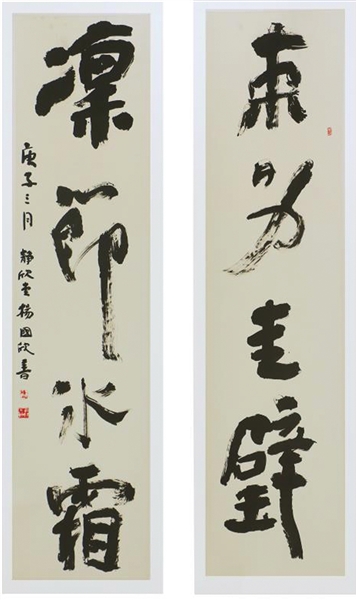 束身圭璧
凜節冰霜
庚子三月 靜欣堂楊國欣書